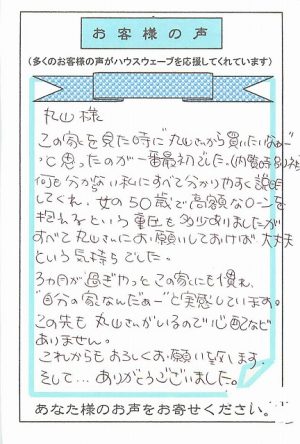 お客様の声
(多くのお客様の声がハウスウェーブを応援してくれています)
丸山様
この家を見た時に"丸山さんから買いたいなぁ〜"
って思ったのが一番最初でした。(内覧時別の社
何も分からない私にすべて分かりやすく説明
してくれ、女の50歳で高額なローンを
抱えるという重圧も多少ありましたが
すべて丸山さんにお願いしておけば、大丈夫
という気持ちでした。
3カ月が過ぎやっとこの家にも慣れ、
"自分の家なんだぁ〜"と実感しています。
この先も丸山さんがいるので心配など
ありません。
これからもよろしくお願い致します。
そして…ありがとうございました。
あなた様のお声をお寄せください。